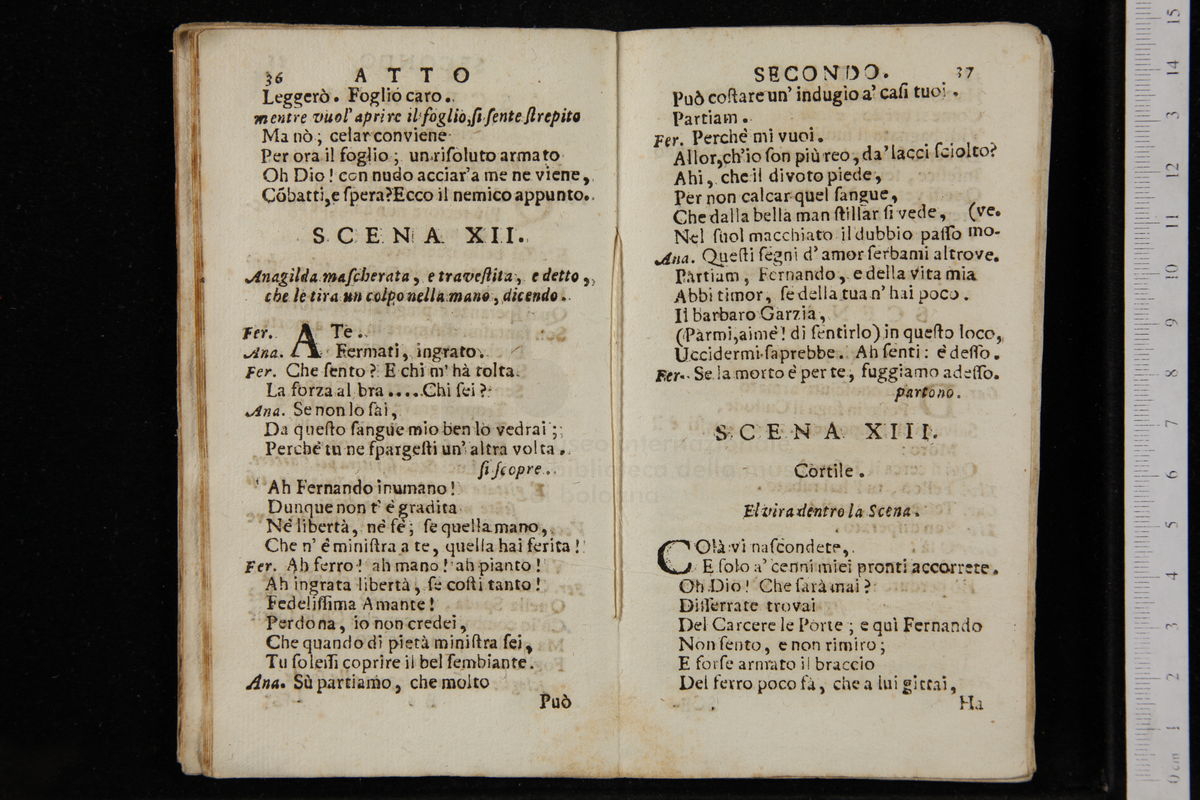 36 ATTO
Leggerò. Foglio caro.
mentre vuol' aprire il foglio, si sente strepito
Ma nò; celar conviene
Per ora il foglio; un risoluto armato
Oh Dio! con nudo acciar' a me ne viene,
Cõbatti, e spera? Ecco il nemico appunto.
SCENA XII.
Anagilda mascherata, e travestita, e detto,
che le tira un colpo nella mano, dicendo.
Fer. A Te.
Ana. Fermati, ingrato.
Fer. Che sento? E chi m' hà tolta
La forza al bra .... Chi sei?
Ana. Se non lo sai,
Da questo sangue mio ben lo vedrai;
Perchè tu ne spargesti un' altra volta.
si scopre.
Ah Fernando inumano!
Dunque non t' è gradita
Nè libertà, nè fè; se quella mano,
Che n' è ministra a te, quella hai ferita!
Fer. Ah ferro! ah mano! ah pianto!
Ah ingrata libertà, se costi tanto!
Fedelissima Amante!
Perdona, io non credei,
Che quando di pietà ministra sei,
Tu solessi coprire il bel sembiante.
Ana. Sù partiamo, che molto
Può
SECONDO. 37
Può costare un' indugio a' casi tuoi.
Partiam.
Fer. Perchè mi vuoi.
Allor, ch'io son più reo, da' lacci sciolto?
Ahi, che il divoto piede,
Per non calcar quel sangue,
Che dalla bella man stillar si vede, (ve.
Nel suol macchiato il dubbio passo mo-
Ana. Questi segni d' amor serbami altrove.
Partiam, Fernando, e della vita mia
Abbi timor, se della tua n' hai poco.
Il barbaro Garzia,
(Parmi, aimè! di sentirlo) in questo loco,
Uccidermi saprebbe. Ah senti: è desso.
Fer. Se la morto è per te, fuggiamo adesso.
partono.
SCENA XIII.
Cortile.
Elvira dentro la Scena.
COlà vi nascondete,
E solo a' cenni miei pronti accorrete.
Oh Dio! Che sarà mai?
Disserrate trovai
Del Carcere le Porte; e quì Fernando
Non sento, e non rimiro;
E forse armato il braccio
Del ferro poco fà, che a lui gittai,
Ha